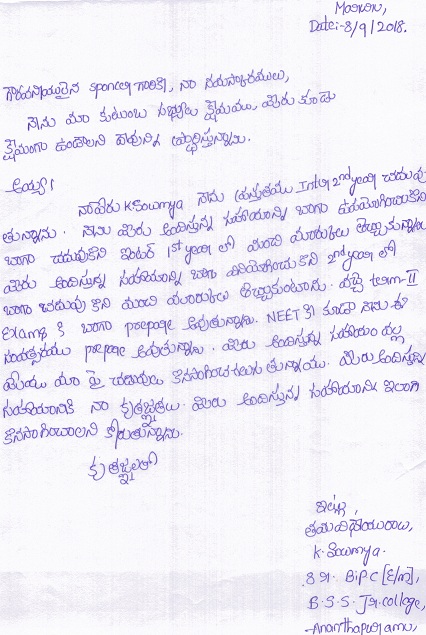 Date:- 8/9/2018.
గౌరవనీయులైన sponcer గారికి, నా నమస్కారములు,
నేను మా కుటుంబ సభ్యులు క్షేమము, మీరు కూడా
క్షేమంగా ఉండాలని దేవున్ని ప్రార్థిస్తున్నాను.
అయ్యా!
నాపేరు K.Sowmya నేను ప్రస్తుతము Inter 2nd year చదువు
తున్నాను. నేను మీరు అందిస్తున్న సహాయాన్ని బాగా ఉపయోగించుకొని
బాగా చదువుకొని ఇంటర్ 1st year లో మంచి మార్కులు తెచ్చుకున్నాను
మీరు అందిస్తున్న సహాయాన్ని బాగా వినియోగించుకొని 2nd year లో
బాగ చదువు కొని మంచి మార్కులు తెచ్చుకుంటాను. వచ్చే term-II
Exams కి బాగా prepare అవుతున్నాను. NEET కి కూడా నేను ఈ
సంవత్సరము prepare అవుతున్నాను. మీరు అందిస్తున్న సహాయం వల్ల
మేము మా పై చదువులు కొనసాగించగలుగుతున్నాము. మీరు అందిస్తున్న
సహాయానికి నా కృతజ్ఞతలు. మీరు అందిస్తున్న సహాయాన్ని ఇలాగే
కొనసాగించాలని కోరుతున్నాను.
కృతజ్ఞతలతో
ఇట్లు,
తమవిధేయురాలు,
K. Sowmya.
Sr. BiPC [E/m],
B.S.S. Jr. college,
Ananthapuramu,